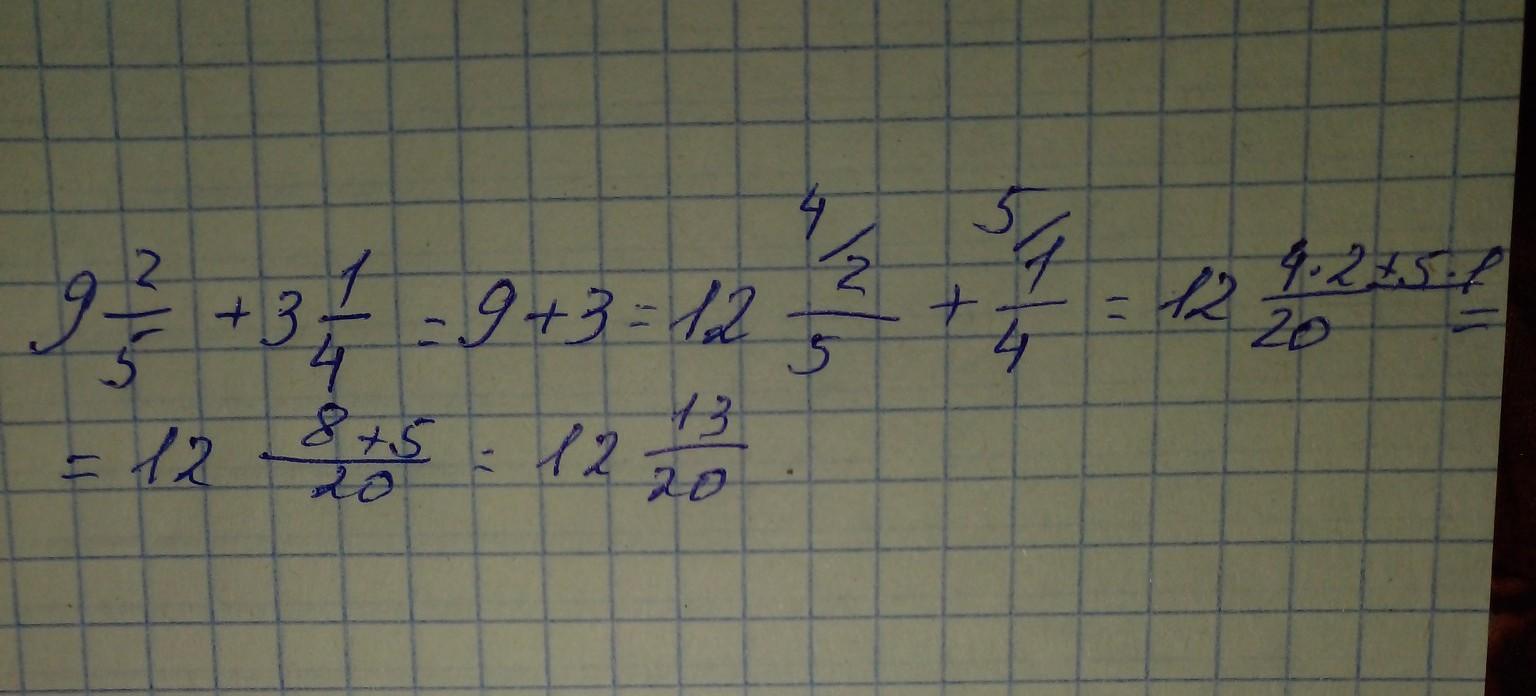 9 2/5 + 3 1/4 = 9 + 3 = 12 4/2/5 + 5/1/4 = 12 4·2+5·1/20 =
= 12 8+5/20 = 12 13/20.